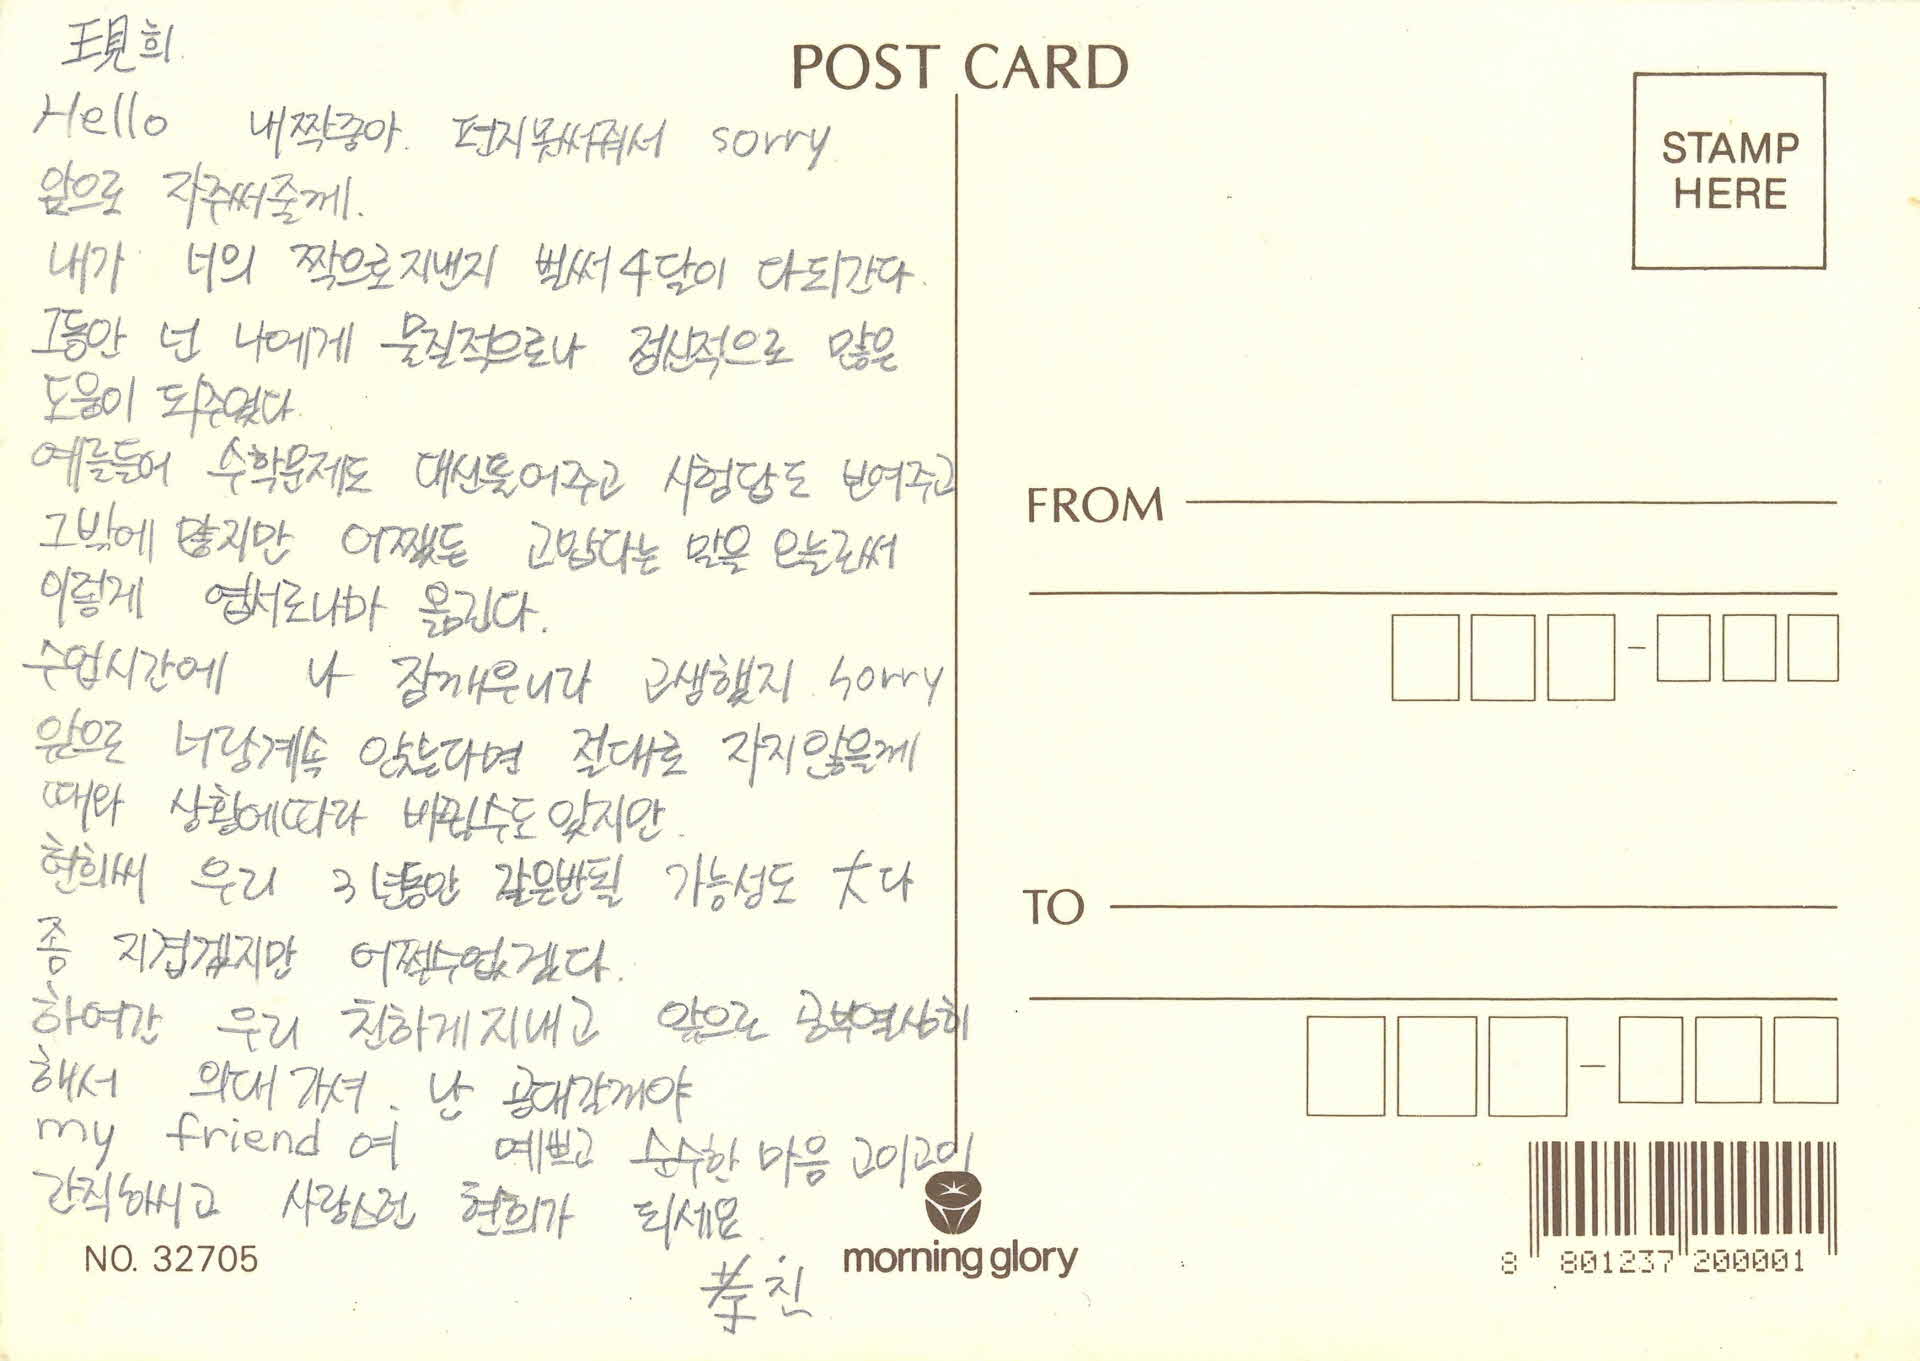 現희
Hello 내짝좋아. 편지못써줘서 sorry
앞으로 자주써줄께.
내가 너의 짝으로지낸지 벌써 4달이 다되간다.
그동안 넌 나에게 물질적으로나 정신적으로 많은
도움이 되주였다.
예를들어 수학문제도 대신풀어주고 시험답도 보여주고
그밖에 많지만 어쨌든 고맙다는 말을 오늘로써
이렇게 엽서로나마 옮긴다.
수업시간에 나 잠깨우니라 고생했지. sorry
앞으로 너랑계속 앉는다면 절대로 자지않을께
때와 상황에따라 바뀔수도 있지만.
현희씨 우리 3년동안 같은반될 가능성도 大다
좀 지겹겠지만 어쩔수없겠다.
하여간 우리 친하게지내고 앞으로 공부열심히
해서 의대가셔. 난 공대갈꺼야
my friend여 예쁘고 순수한 마음 고이고이
간직하시고 사랑스런 현희가 되세요.
친
POST CARD
STAMP
HERE
FROM
TO
NO. 32705
morning glory
8 801237 200001